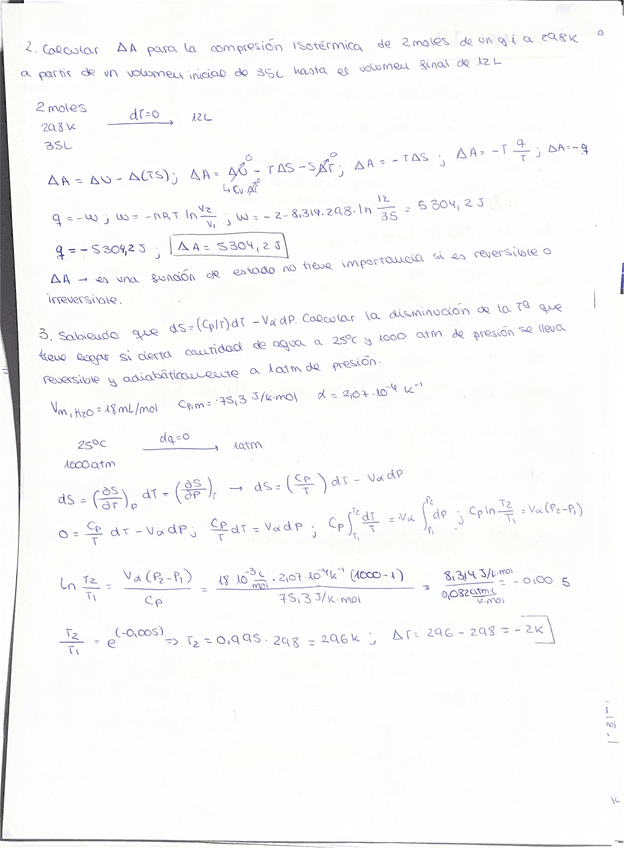 2. Calcular ΔA para la compresión isotérmica de 2 moles de un g.i a 298K
a partir de un volumen inicial de 35L hasta el volumen final de 12L
2 moles
298K
35L
dT=0 → 12L
ΔA = ΔU - Δ(TS); ΔA = ΔU⁰ - TΔS - SΔT⁰; ΔA = -TΔS; ΔA = -T q/T; ΔA = -q
↳ Cv.ΔT⁰
q = -w; w = -nRT ln V₂/V₁; w = -2·8,314·298·ln 12/35 = 5304,2 J
q = -5304,2 J; ΔA = 5304,2 J
ΔA → es una función de estado no tiene importancia si es reversible o
irreversible.
3. Sabiendo que dS = (Cp/T)dT - VαdP. Calcular la disminución de la Tª que
tiene lugar si cierta cantidad de agua a 25ºC y 1000 atm de presión se lleva
reversible y adiabáticamente a 1atm de presión.
Vm,H₂O = 18mL/mol Cp,m = 75,3 J/K·mol α = 2,07·10⁻⁴ K⁻¹
25ºC
1000atm
dq=0 → 1atm
dS = (∂S/∂T)p dT + (∂S/∂P)T → dS = (Cp/T) dT - VαdP
0 = Cp/T dT - VαdP; Cp/T dT = VαdP; Cp ∫T₁T₂ dT/T = Vα ∫P₁P₂ dP; Cp ln T₂/T₁ = Vα(P₂-P₁)
Ln T₂/T₁ = Vα(P₂-P₁)/Cp = 18·10⁻³ L/mol · 2,07·10⁻⁴K⁻¹ (1000-1)/75,3 J/K·mol = 8,314 J/K·mol/0,082 atm·L/K·mol = -0,005
T₂/T₁ = e^(-0,005) ⇒ T₂ = 0,995·298 = 296K; ΔT = 296 - 298 = -2K